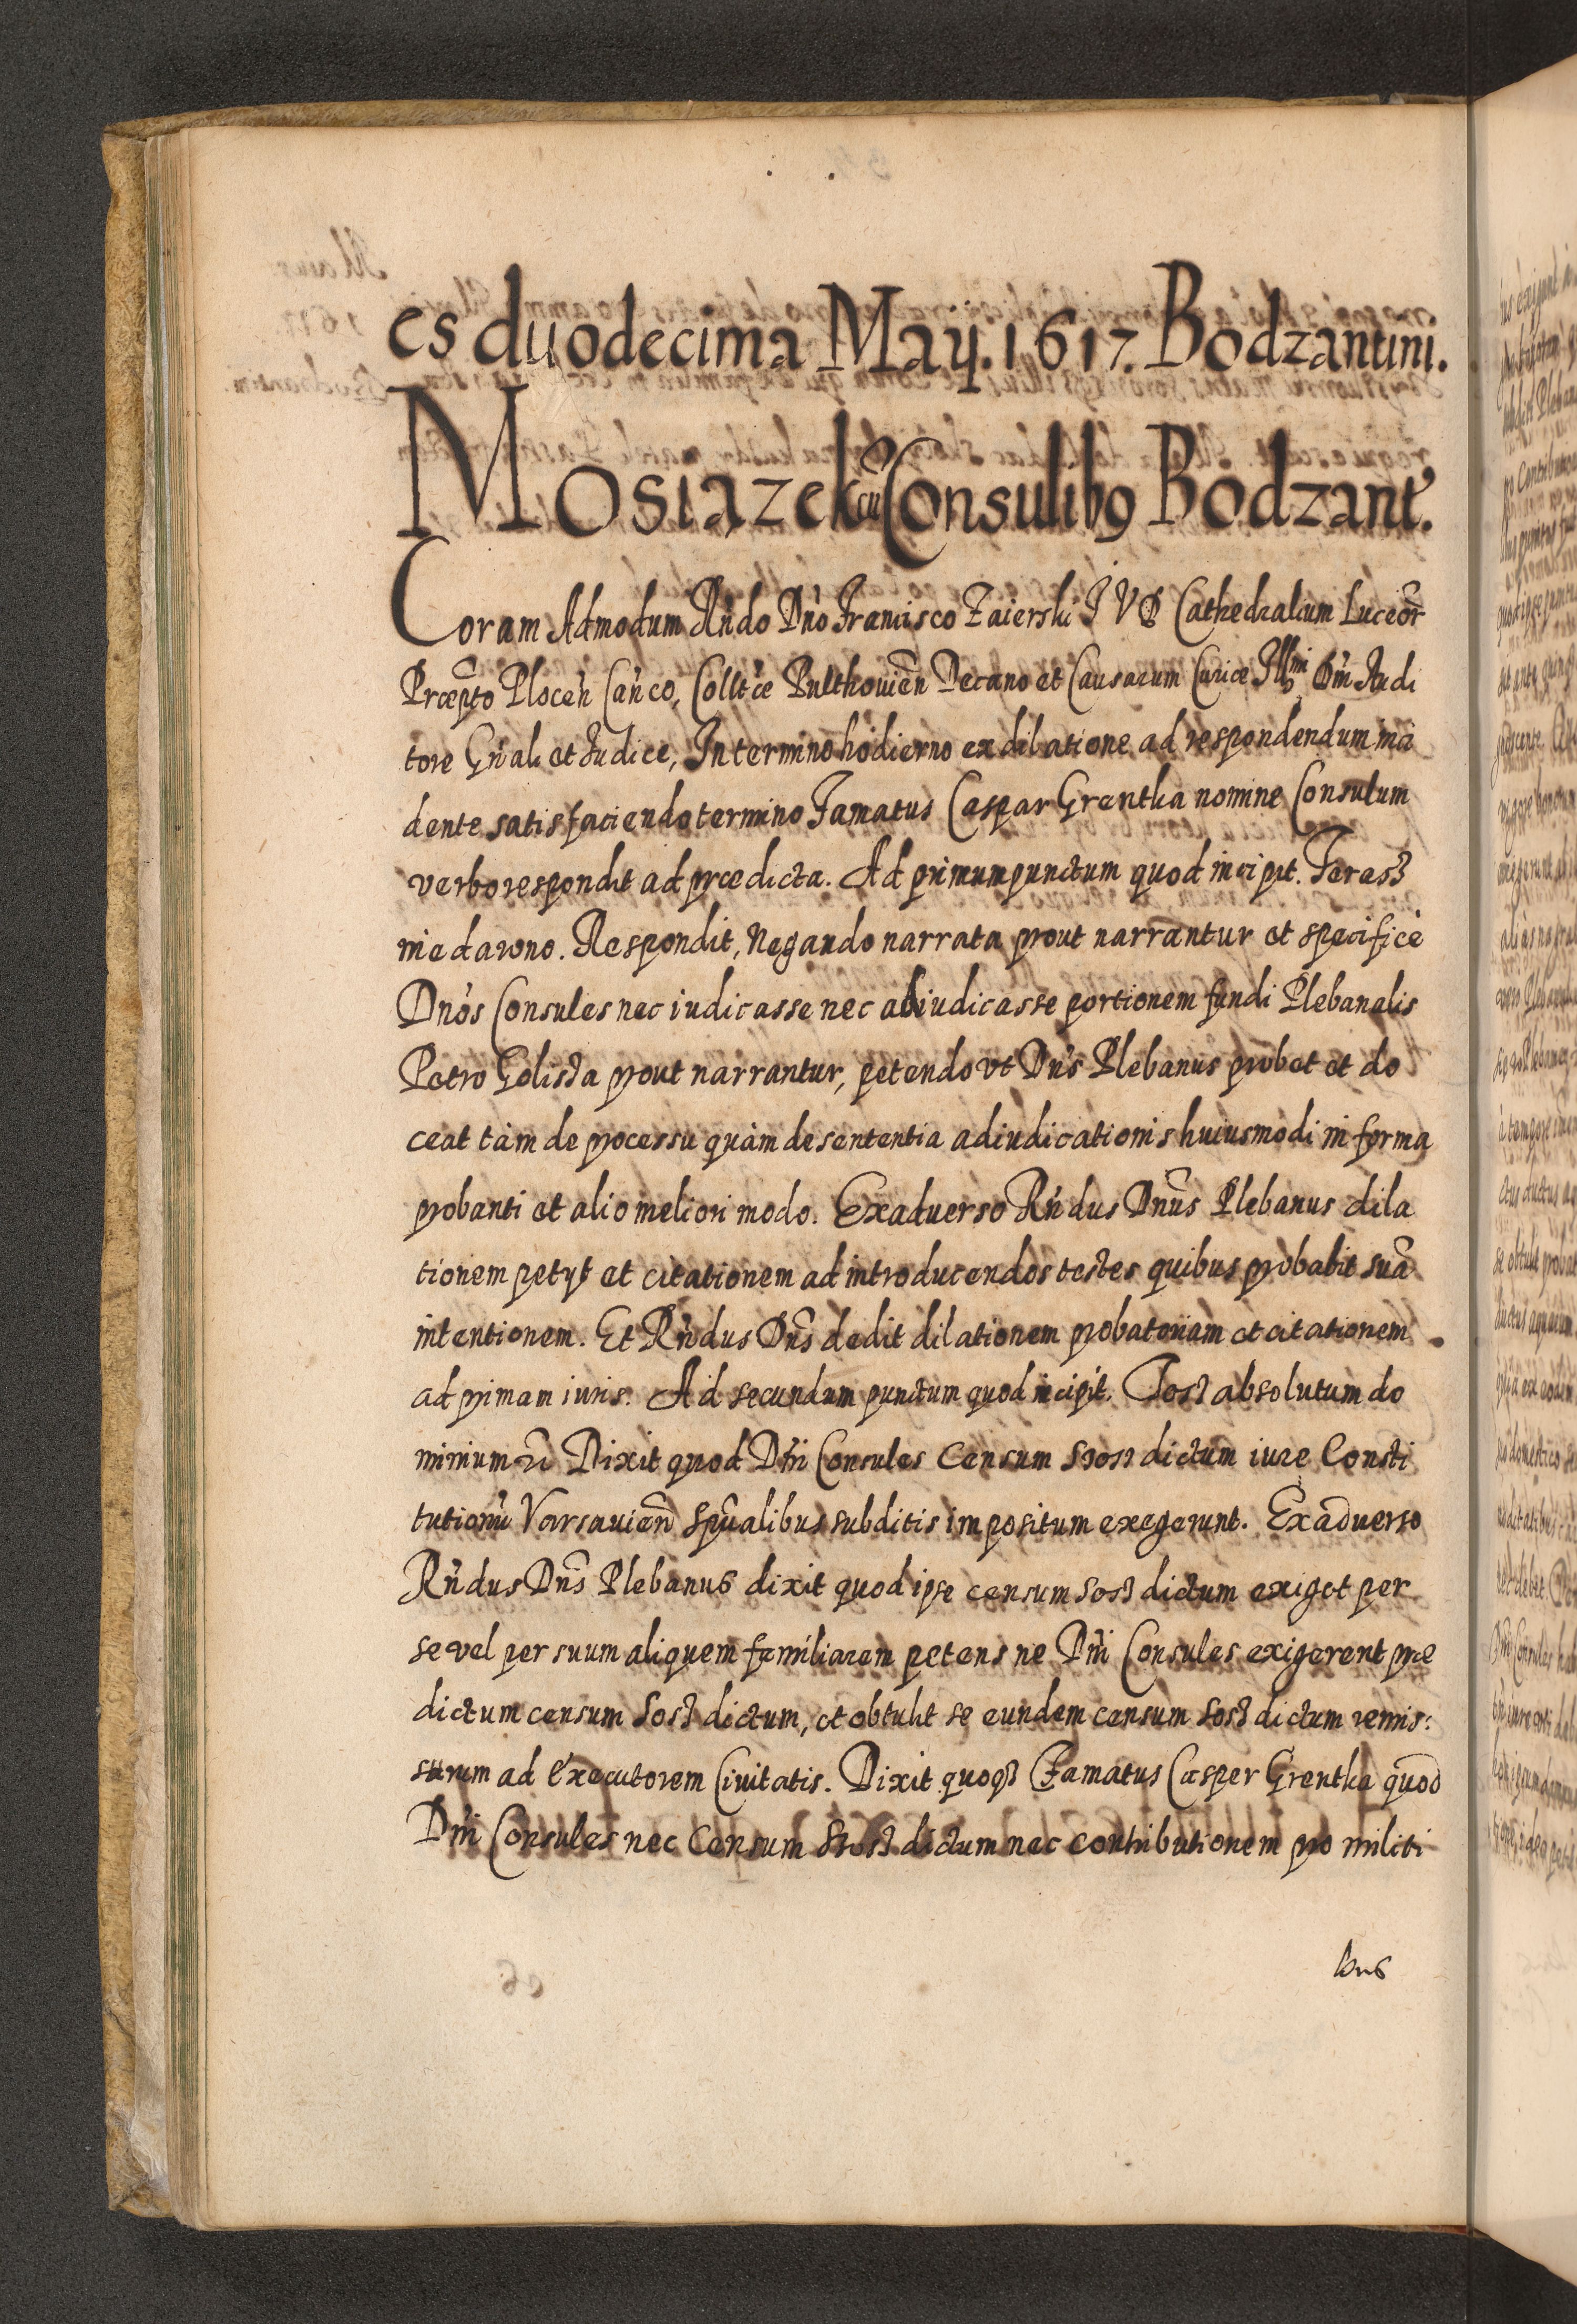 es duodecima Maÿ. 1617. Bodzantini.
Mosiazek cū Consulibꝯ Bodzant.
Coram Admodum Rn̄do Dn̄o Francisco Zaierski I V D Cathedralium Luceōr
Præpto Plocen̄ Can̄co, Collt̄æ Pulthouien̄ Decano et Causarum Curiæ Illmi Dn̄i Audi
tore Gn̄ali et Iudice, In termino hodierno ex dilatione ad respondendum inci
dente satisfaciendo termino Famatus Caspar Grentka nomine Consulum
verbo respondit ad prædicta. Ad primum punctum quod incipit. Teresz
niedawno. Respondit, Negando narrata prout narrantur et specificè
Dn̄os Consules nec iudicasse nec adiudicasse portionem fundi Plebanalis
Petro Golista prout narrantur, petendo vt Dn̄s Plebanus probet et do
ceat tàm de processu quàm de sententia adiudicationis huiusmodi in forma
probanti et alio meliori modo. Exaduerso Rn̄dus Dnūs Plebanus dila
tionem petyt et citationem ad introducendos testes quibus probabit suā
intentionem. Et Rn̄dus Dn̄s dedit dilationem probatoriam et citationem
ad primam iuris. Ad secundum punctum quod incipit. Iosz absolutum do
minium Dixit quod Dn̄i Consules Censum szosz dictum iure Consti
tutionū Varsauien̄ spūalibus subditis impositum exegerunt. Exaduerso
Rn̄dus Dn̄s Plebanus dixit quod ipse censum sosz dictum exiget per
se vel per suum aliquem familiarem petens ne Dn̄i Consules exigerent præ
dictum censum sosz dictum, et obtulit se eundem censum sosz dictum remis:
surum ad Executorem Ciuitatis. Dixit quoqꝫ Famatus Casper Grentka quod
Dn̄i Consules nec Censum szosz dictum nec contributionem pro militi
bus